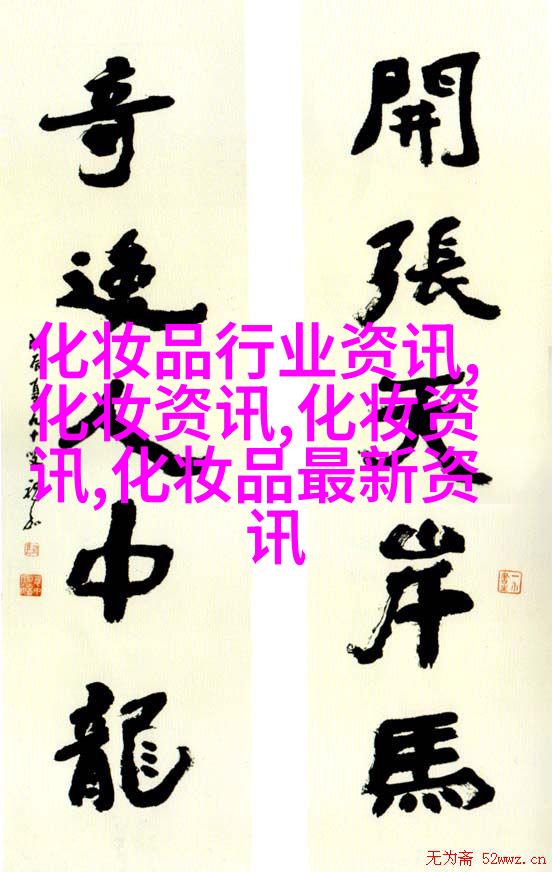 開張天岸馬
奇逸人中龍
化妆品行业资讯,
化妆资讯,化妆资
讯,化妆品最新资
讯
无为斋 52wwz.cn